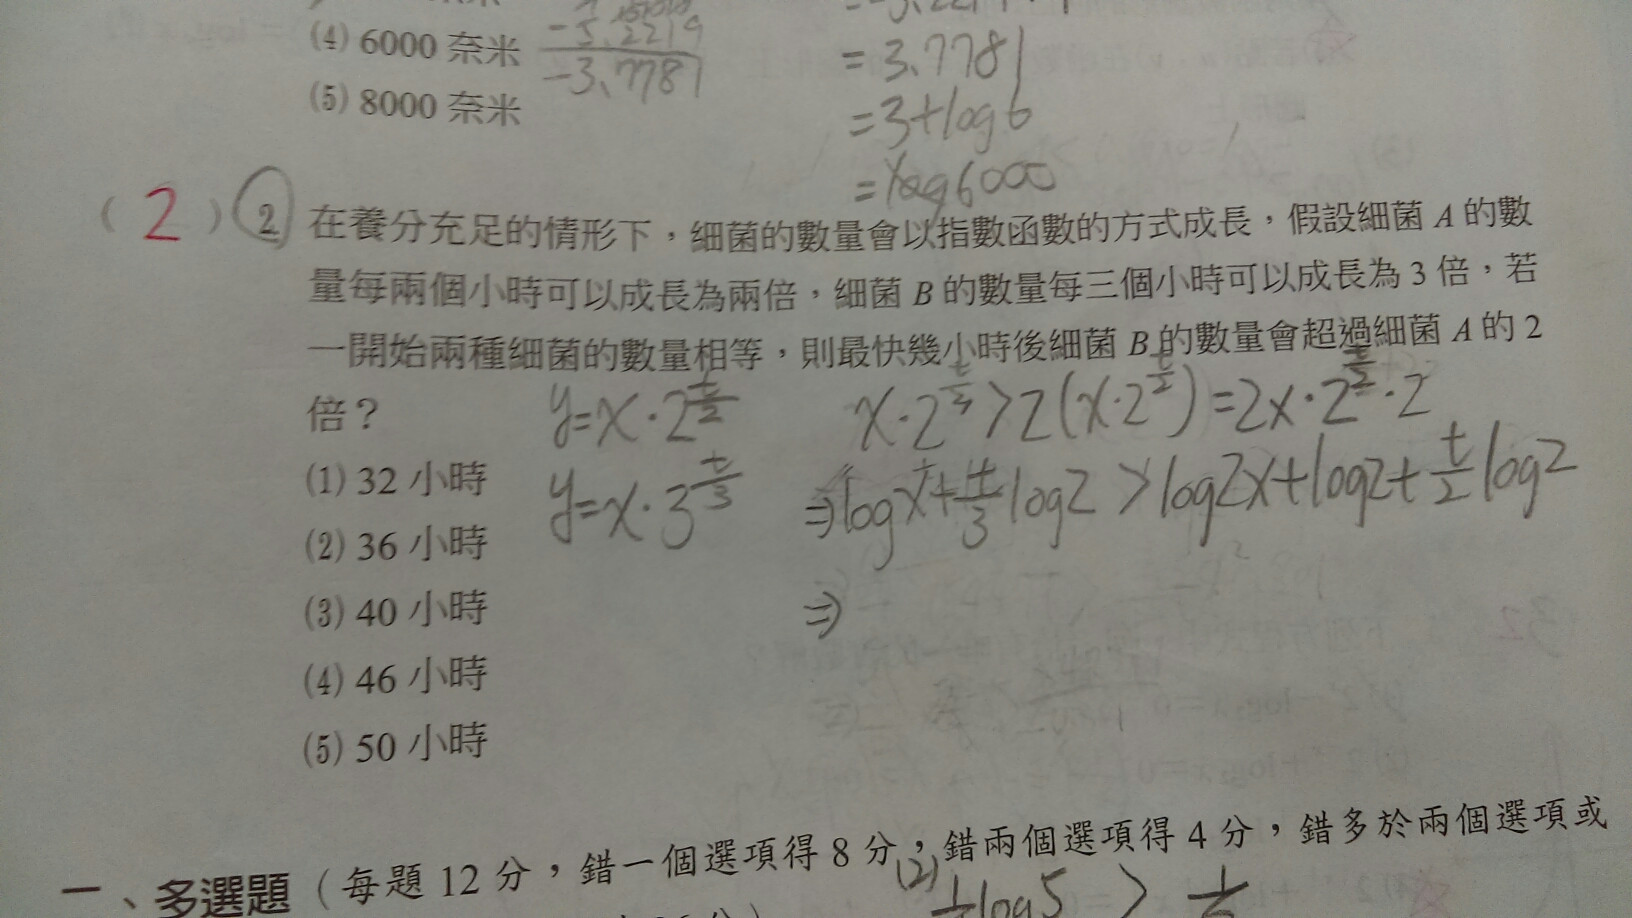 (4) 6000 奈米
-5.2219
-3.7781
= 3.7781
(5) 8000 奈米
= 3+log6
= log6000
( 2 ) 2 在養分充足的情形下，細菌的數量會以指數函數的方式成長，假設細菌 A 的數
量每兩個小時可以成長為兩倍，細菌 B 的數量每三個小時可以成長為 3 倍，若
一開始兩種細菌的數量相等，則最快幾小時後細菌 B 的數量會超過細菌 A 的 2
倍？
y=x·2^(t/2)
x·2^(t/3)>2(x·2^(t/2))=2x·2^(t/2)·2
(1) 32 小時
y=x·3^(t/3)
⇒logx+t/3 log2 > log2x+log2+t/2 log2
(2) 36 小時
(3) 40 小時
⇒
(4) 46 小時
(5) 50 小時
一、多選題（每題 12 分，錯一個選項得 8 分，錯兩個選項得 4 分，錯多於兩個選項或
(2)
log5 >